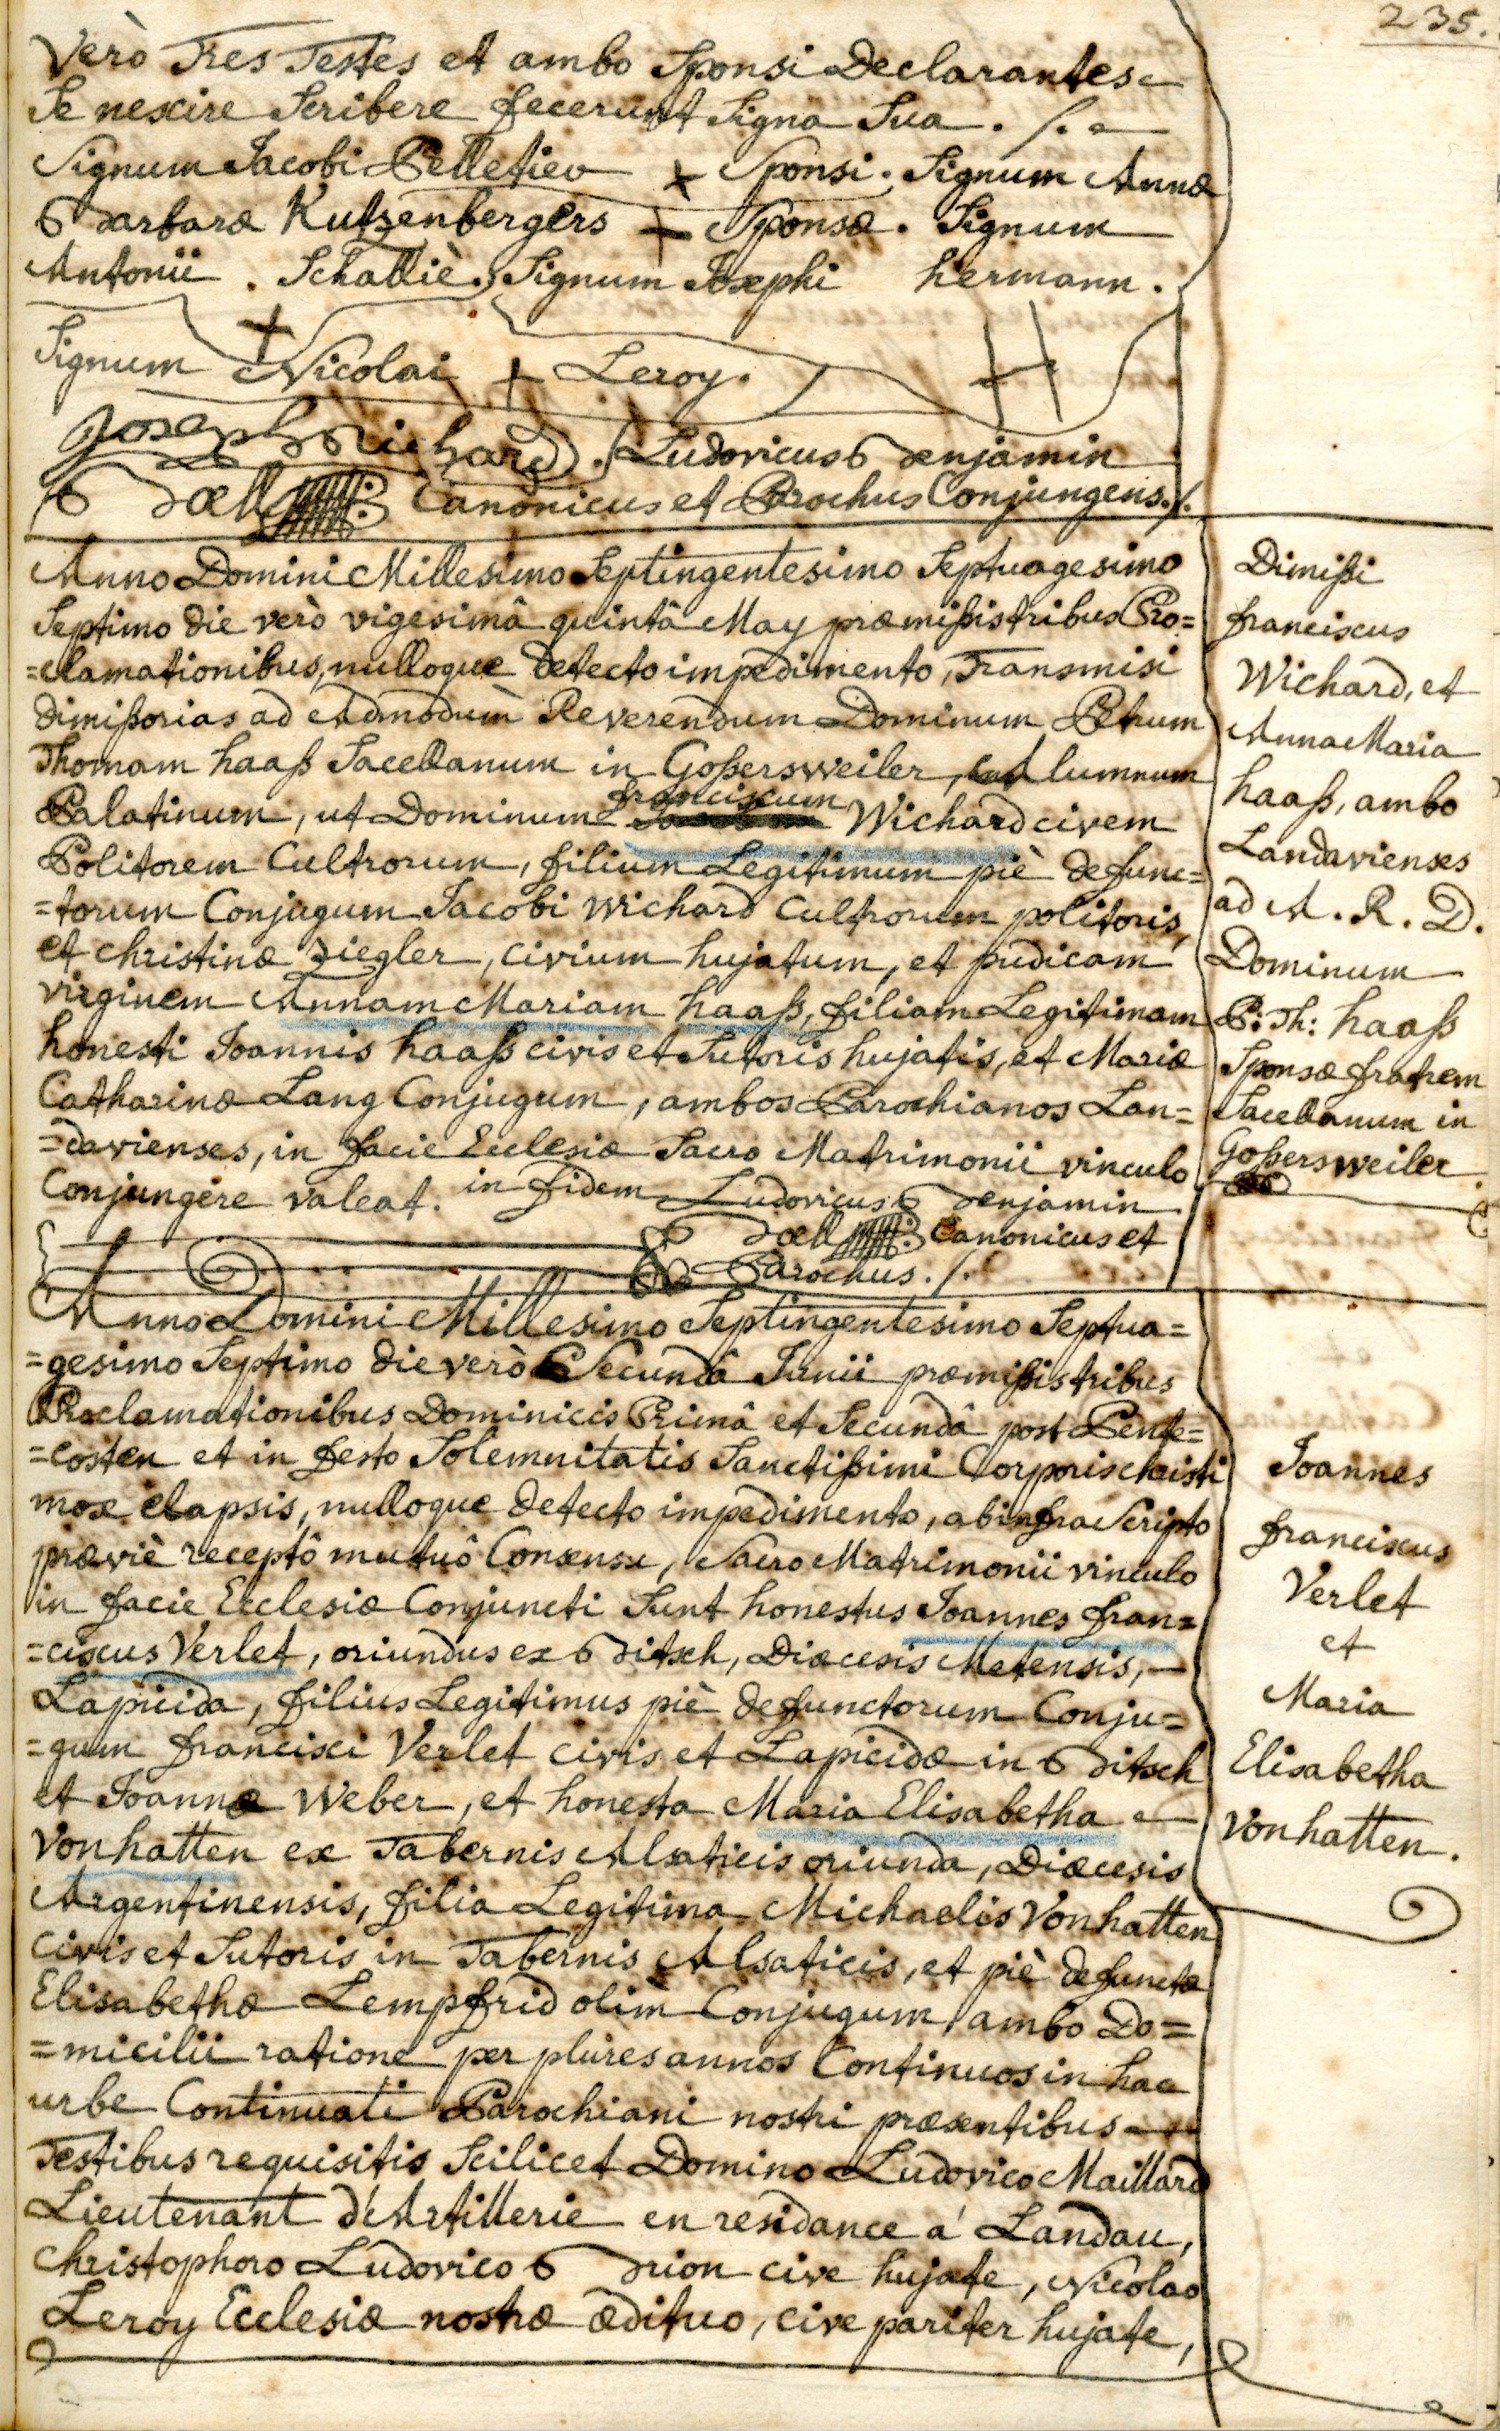 235.
Verò Tres Testes et ambo Sponsi Declarantes
Se nescire Scribere fecerunt Signa Sua . /.
Signum Jacobi Pelletier + Sponsi. Signum Annæ
Barbaræ Kutzenbergers + Sponsæ. Signum
Antonii . Schalliè. Signum Josephi hermann.
+
Signum Nicolai + Leroy.
Joseph Richard ./. Ludovicus Benjamin
Bœll Canonicus et Parochus Conjungens./.
Anno Domini Millesimo Septingentesimo Septuagesimo
Septimo die verò vigesimâ quintâ May præmißis tribus Pro=
=clamationibus, nulloque detecto impedimento, Transmisi
dimißorias ad Admodum Reverendum Dominum Petrum
Thomam haaß Sacellanum in Goßersweiler, Alumnum
Palatinum, ut Dominum franciscum Wichard civem
Politorem Cultrorum, filium Legitimum piè defunc=
=torum Conjugum Jacobi Wichard Cultrorum politoris,
et Christinæ Ziegler, civium hujatum, et pudicam
virginem Annam Mariam haaß, filiam Legitimam
honesti Joannis haaß civis et Sutoris hujatis, et Mariæ
Catharinæ Lang Conjugum, ambos Parochianos Lan=
=davienses, in facie Ecclesiæ Sacro Matrimonii vinculo
Conjungere valeat. in fidem Ludovicus Benjamin
Bœll Canonicus et
Parochus . /.
Dimißi
franciscus
Wichard, et
Anna Maria
haaß, ambo
Landavienses
ad A. R. D.
Dominum
P: Th: haaß
Sponsæ fratrem
Sacellanum in
Goßersweiler
Anno Domini Millesimo Septingentesimo Septua=
=gesimo Septimo die verò Secundâ Junii præmißis tribus
Proclamationibus Dominicis Primâ et Secundâ post Pente=
=costen et in festo Solemnitatis Sanctißimi Corporis christi
mox elapsis, nulloque detecto impedimento, ab infra Scripto
præviè receptô mutuô Consensu, Sacro Matrimonii vinculo
in facie Ecclesiæ Conjuncti Sunt honestus Joannes fran=
=ciscus Verlet, oriundus ex Bitsch, Diœcesis Metensis,
Lapicida, filius Legitimus piè defunctorum Conju=
=gum francisci Verlet civis et Lapicidæ in Bitsch
et Joannæ Weber, et honesta Maria Elisabetha
Vonhatten ex Tabernis Alsaticis oriunda, Diœcesis
Argentinensis, filia Legitima Michaelis Vonhatten
civis et Sutoris in Tabernis Alsaticis, et piè defunctæ
Elisabethæ Lempfrid olim Conjugum, ambo Do=
=micilii ratione per plures annos Continuos in hac
urbe Continuati Parochiani nostri præsentibus
Testibus requisitis Scilicet Domino Ludovico Maillard
Lieutenant d'Artillerie en residance á Landau,
Christophoro Ludovico Brion cive hujate, Nicolao
Leroy Ecclesiæ nostræ ædituo, cive pariter hujate,
Joannes
franciscus
Verlet
et
Maria
Elisabetha
Vonhatten.